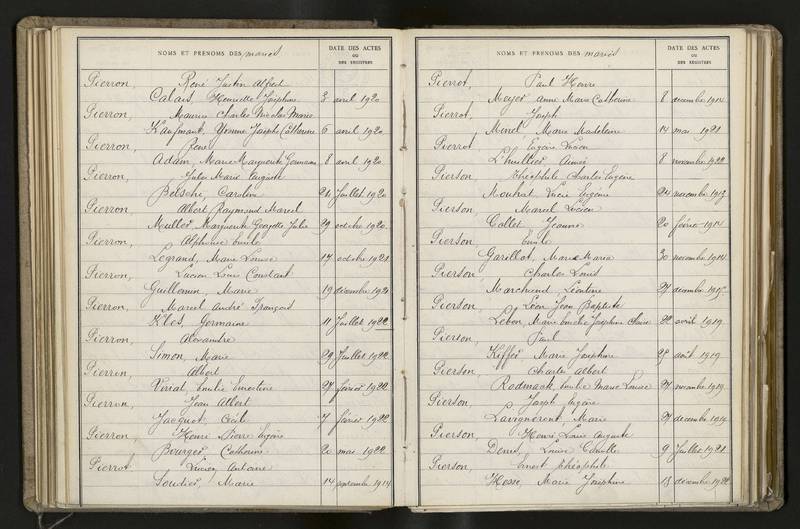 NOMS ET PRENOMS DES mariés
DATE DES ACTES
OU
DES REGISTRES
Pierron, René Justin Albert
Calais, Henriette Joséphine 3 avril 1920
Pierron, Maurice Charles Nicolas Marie
Kaufmant, Yvonne Josèphe Catherine 6 avril 1920
Pierron, René
Adam, Marie Marguerite Germaine 8 avril 1920
Pierron, Jules Marie Auguste
Betsche, Caroline 24 Juillet 1920
Pierron, Albert Raymond Marcel
Muller, Marguerite Georgette Julie 29 octobre 1920
Pierron, Alphonse Emile
Legrand, Marie Louise 17 octobre 1921
Pierron, Lucien Louis Constant
Guillermin, Marie 19 décembre 1921
Pierron, Marcel André François
Klès, Germaine 11 Juillet 1922
Pierron, Alexandre
Simon, Marie 29 Juillet 1922
Pierron, Albert
Vériat, Emilie Ernestine 27 février 1922
Pierron, Jean Albert
Jacquot, Cécile 7 février 1922
Pierron, Henri Pierre Eugène
Bourger, Catherine 20 mai 1922
Pierrot, Lucien Antoine
Soudier, Marie 14 septembre 1914
NOMS ET PRENOMS DES mariés
DATE DES ACTES
OU
DES REGISTRES
Pierrot, Paul Henri
Meyer, Anne Marie Catherine 8 décembre 1914
Pierrot, Joseph
Menel, Marie Madeleine 14 mai 1921
Pierrot, Eugène Lucien
L'huillier, Aimée 8 novembre 1922
Pierson, Théophile Charles Eugène
Moutrat, Lucie Eugénie 24 novembre 1913
Pierson, Marcel Lucien
Collet, Jeanne 20 février 1914
Pierson, Emile
Garillot, Marie Maria 30 novembre 1914
Pierson, Charles Louis
Marchand, Léontine 27 décembre 1915
Pierson, Léon Jean Baptiste
Lebon, Marie Emilie Joséphine Claire 22 avril 1919
Pierson, Paul
Kiffer, Marie Joséphine 25 août 1919
Pierson, Charles Albert
Rodmack, Emilie Marie Louise 27 novembre 1919
Pierson, Joseph Eugène
Lavigneront, Marie 27 décembre 1919
Pierson, Henri Louis Auguste
Denis, Louise Camille 9 Juillet 1921
Pierson, Ernest Théophile
Hosse, Marie Joséphine 13 décembre 1922